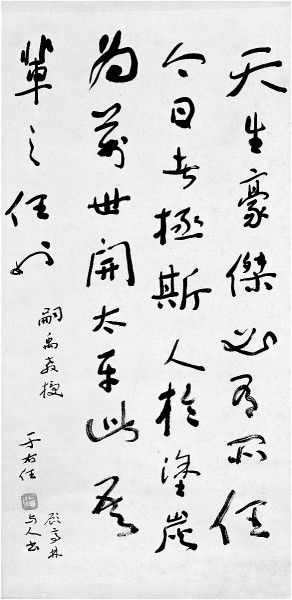 天生豪傑必有所任
今日者拯斯人於塗炭
為萬世開太平此吾
輩之任也
嗣禹教授
于右任
顧亭林
与人書